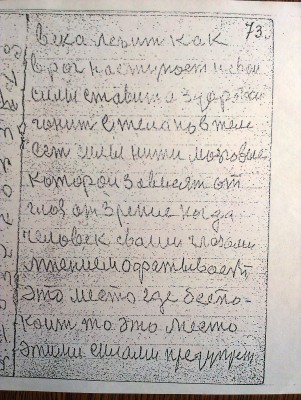 73.
века лечит как
враг наступает и свои
силы ставит а здоровие
гонит с тела но в теле
сет силы нити мозговые
которой зависят от
глаз от зрение когда
человек своими глазами
мнением обратывает
это место где беспо-
коит то это место
этими силами предупреж